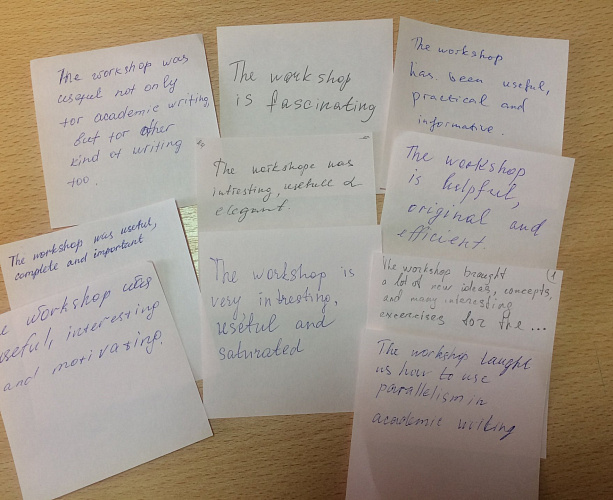 The workshop was
useful not only
for academic writing,
but for other
kind of writing
too.
The workshop
is fascinating
The workshop
has been useful,
practical and
informative.
The workshope was
intresting, usefull &
elegant.
The workshop
is helpful,
original and
efficient.
The workshop was useful,
complete and important
The workshop is
very intresting,
useful and
saturated
The workshop brought
a lot of new ideas, concepts,
and many interesting
excercises for the ...
e workshop was
useful, interesting
and motivating.
The workshop taught
us how to use
parallelism in
academic writing